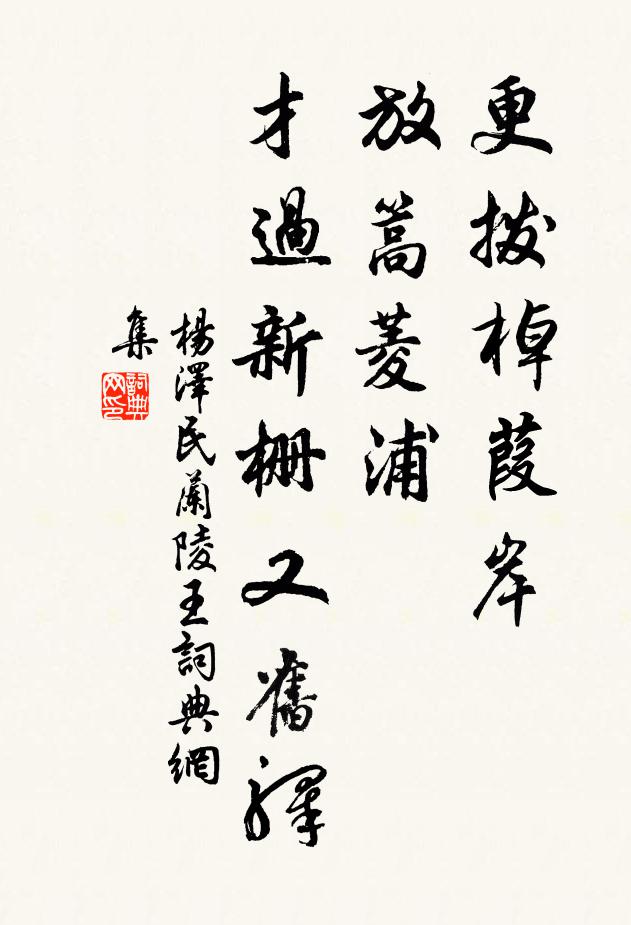 更撥棹葭岸
放篙菱浦
才過新栅又舊驛
楊澤民蘭陵王詞典網
集
詞典
网印